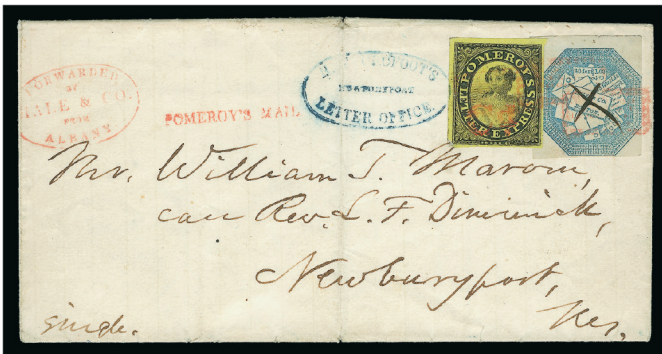 FORWARDED
BY
HALE & CO.
FROM
ALBANY
POMEROY'S MAIL
NEWBURYPORT
LETTER OFFICE
POMEROY'S
LETTER EXPRESS
Mr. William T.
care Rev. L. F. Dimmick,
Newburyport,